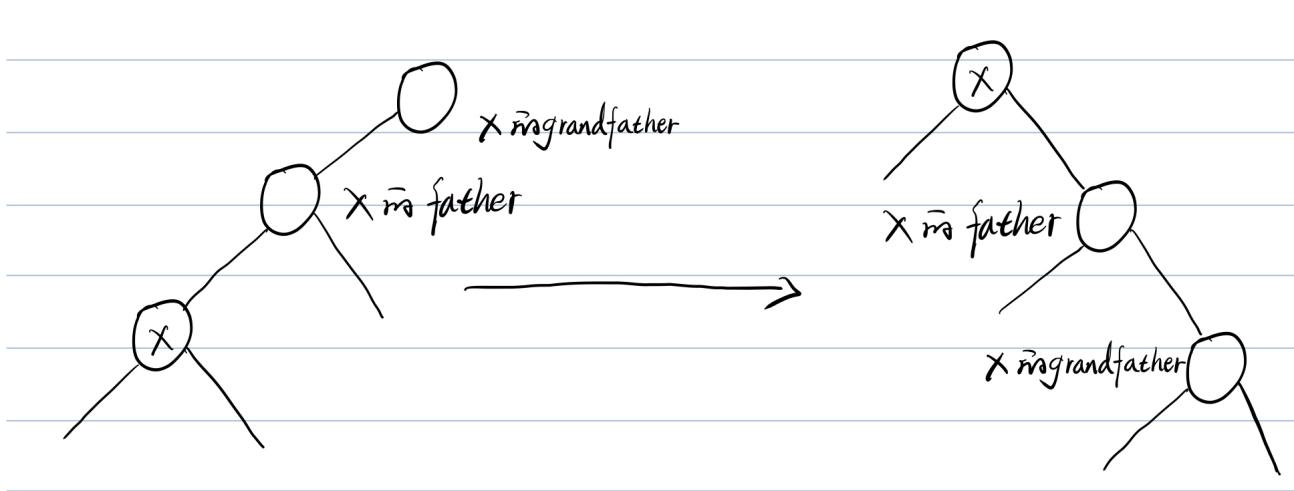 X的grandfather
X的father
X
X
X的father
X的grandfather